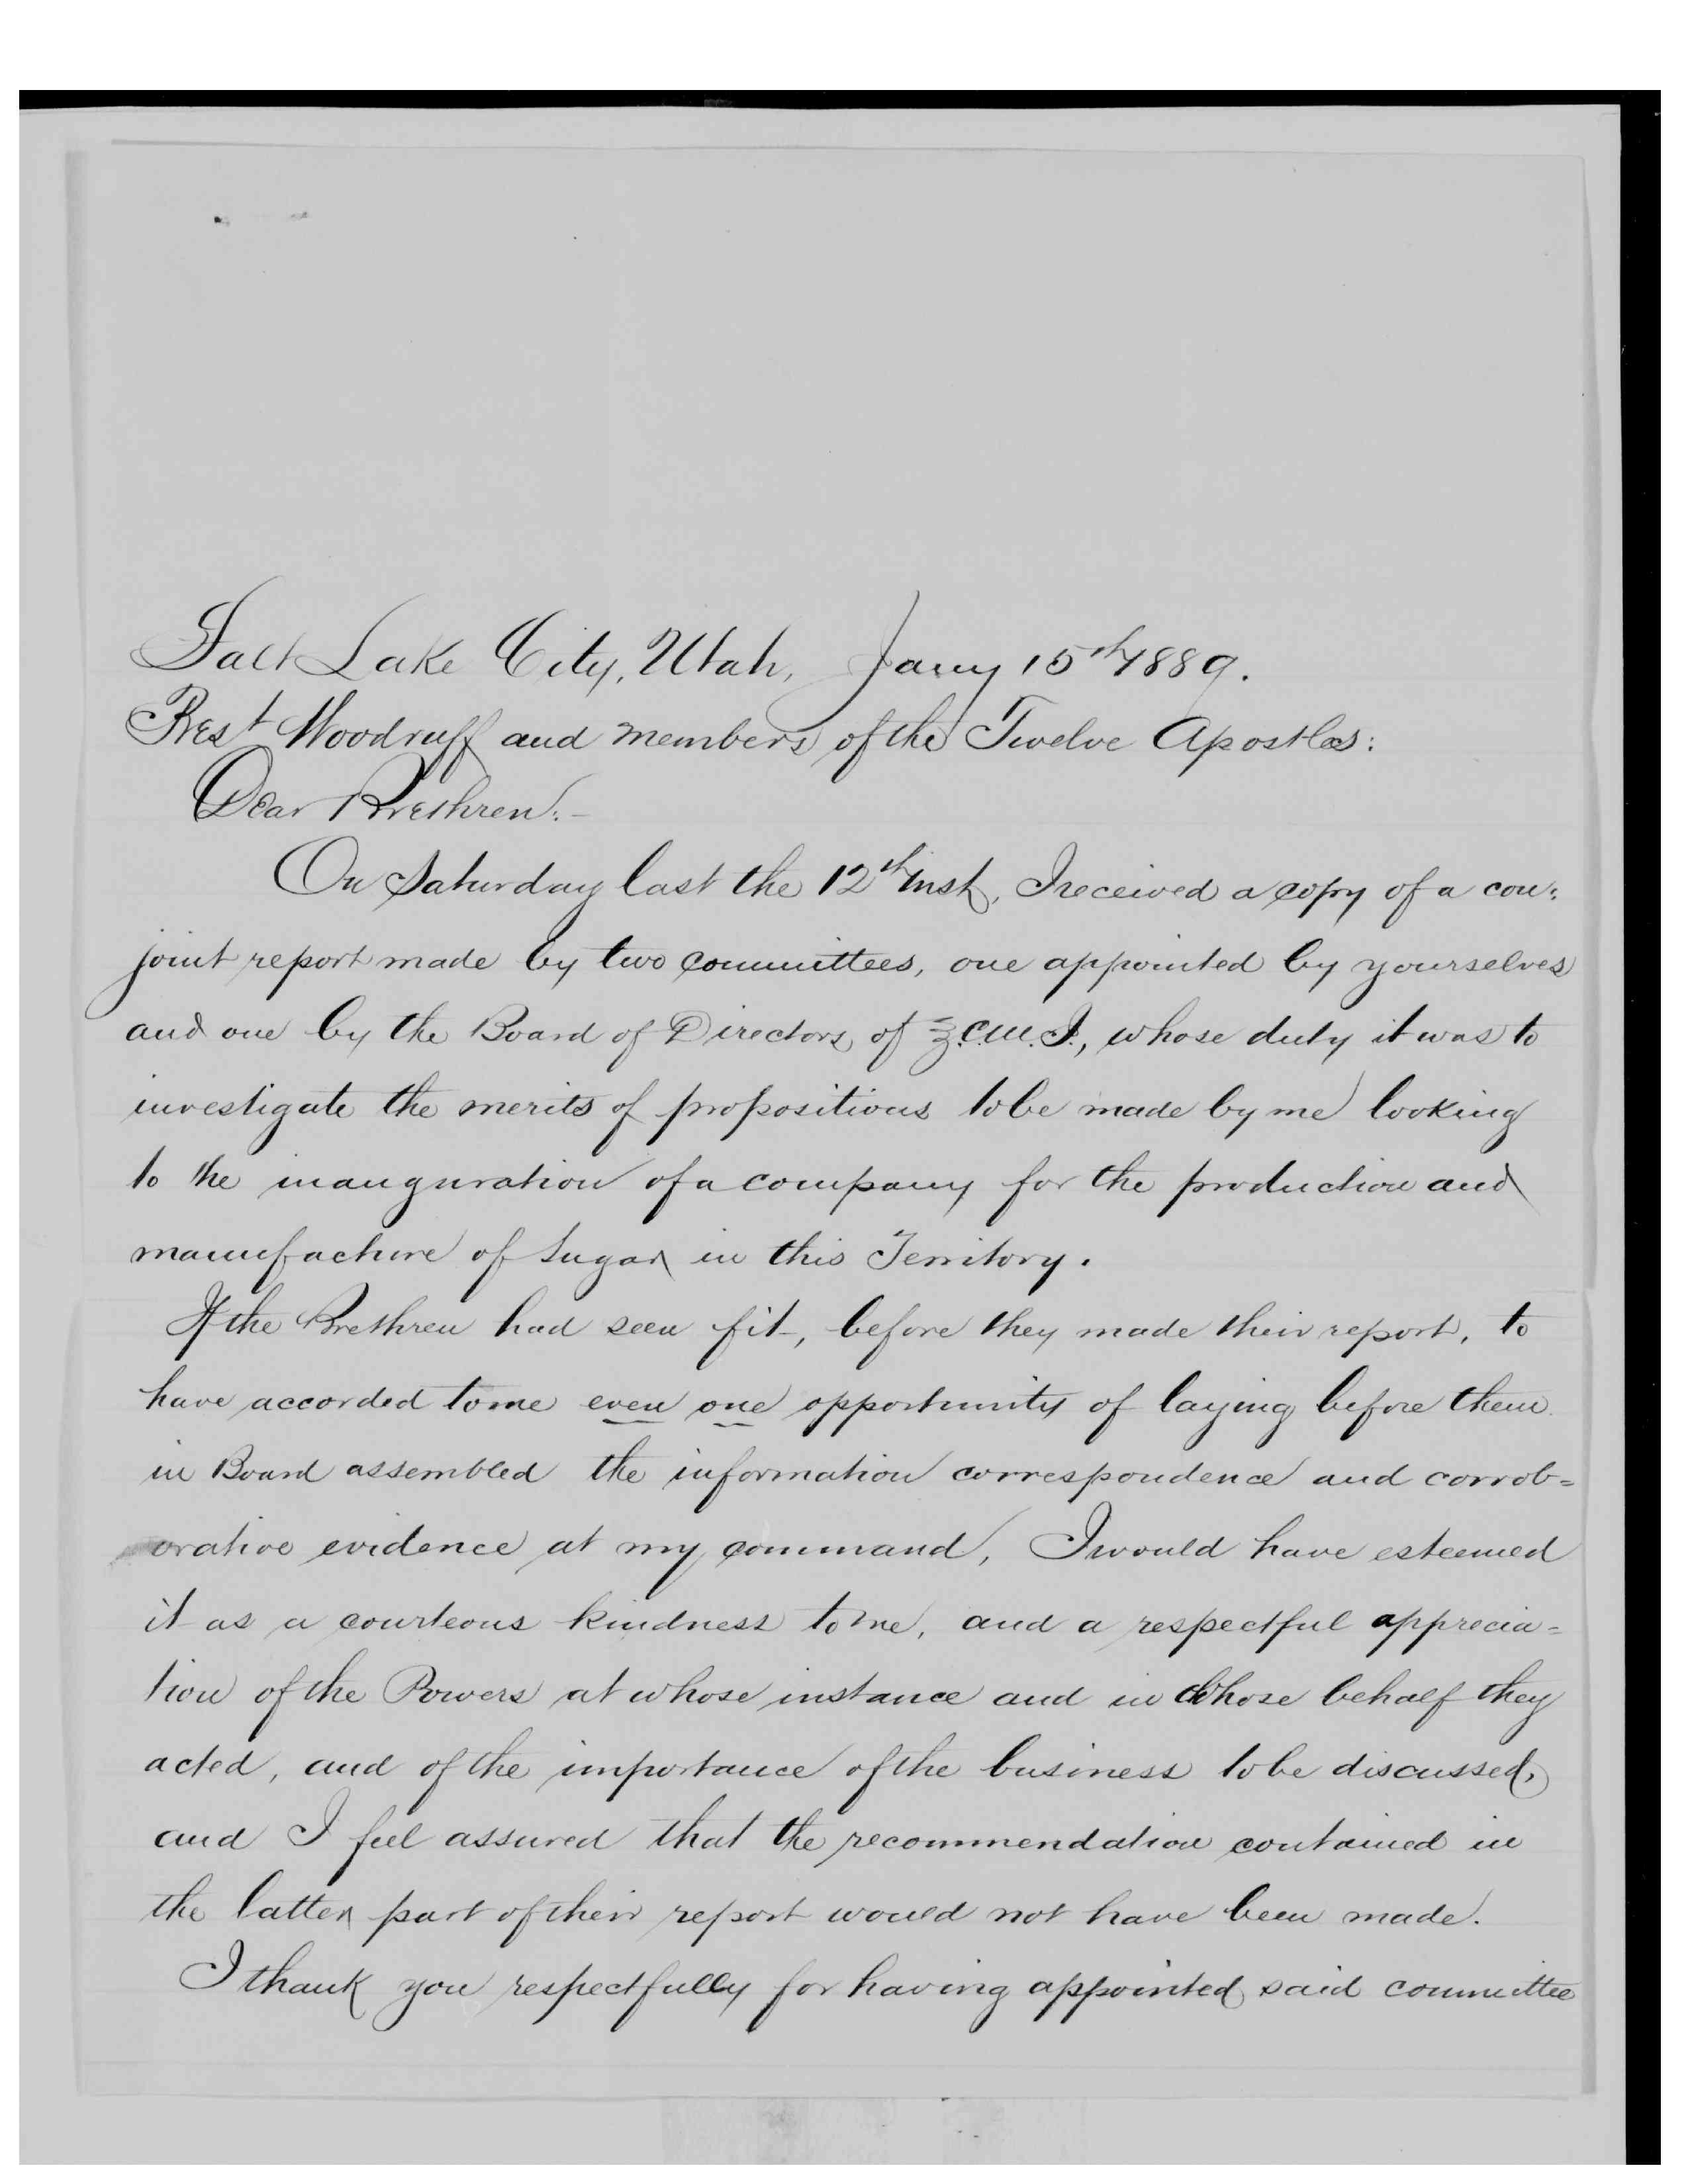 Salt Lake City, Utah, Jany 15th 1889.
Prest Woodruff and members of the Twelve Apostles:
Dear Brethren:-
On Saturday last the 12th inst, I received a copy of a con-
joint report made by two committees, one appointed by yourselves
and one by the Board of Directors of Z.C.M.I., whose duty it was to
investigate the merits of propositions to be made by me looking
to the inauguration of a company for the production and
manufacture of Sugar in this Territory.
If the Brethren had seen fit, before they made their report, to
have accorded to me even one opportunity of laying before them
in Board assembled the information correspondence and corrob=
orative evidence at my command, I would have esteemed
it as a courteous kindness to me, and a respectful apprecia=
tion of the Powers at whose instance and in whose behalf they
acted, and of the importance of the business to be discussed,
and I feel assured that the recommendation contained in
the latter part of their report would not have been made.
I thank you respectfully for having appointed said committee